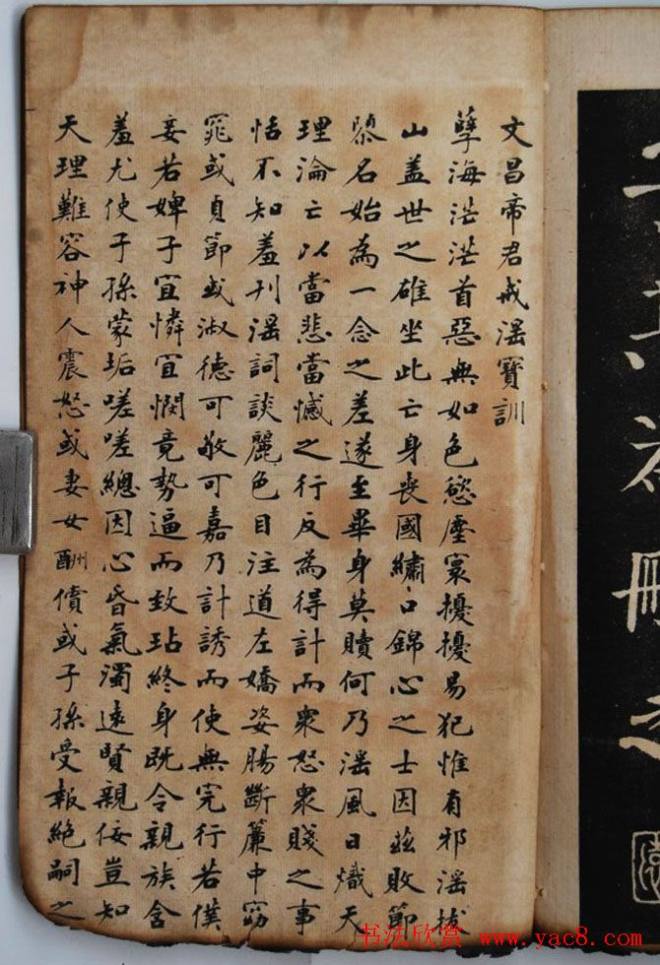 文昌帝君戒淫寶訓
孽海茫茫首惡無如色慾塵寰擾擾易犯惟有邪淫拔
山蓋世之雄坐此亡身喪國繡口錦心之士因茲敗節
隳名始為一念之差遂至畢身莫贖何乃淫風日熾天
理淪亡以當悲當憾之行反為得計而衆怒衆賤之事
恬不知羞刊淫詞談麗色目注道左嬌姿腸斷簾中窈
窕或貞節或淑德可敬可嘉乃計誘而使無完行若僕
妾若婢子宜憐宜憫竟勢逼而致玷終身既令親族含
羞尤使子孫蒙垢嗟嗟總因心昏氣濁遠賢親佞豈知
天理難容神人震怒或妻女酬償或子孫受報絕嗣之
书法欣赏 www.yac8.com